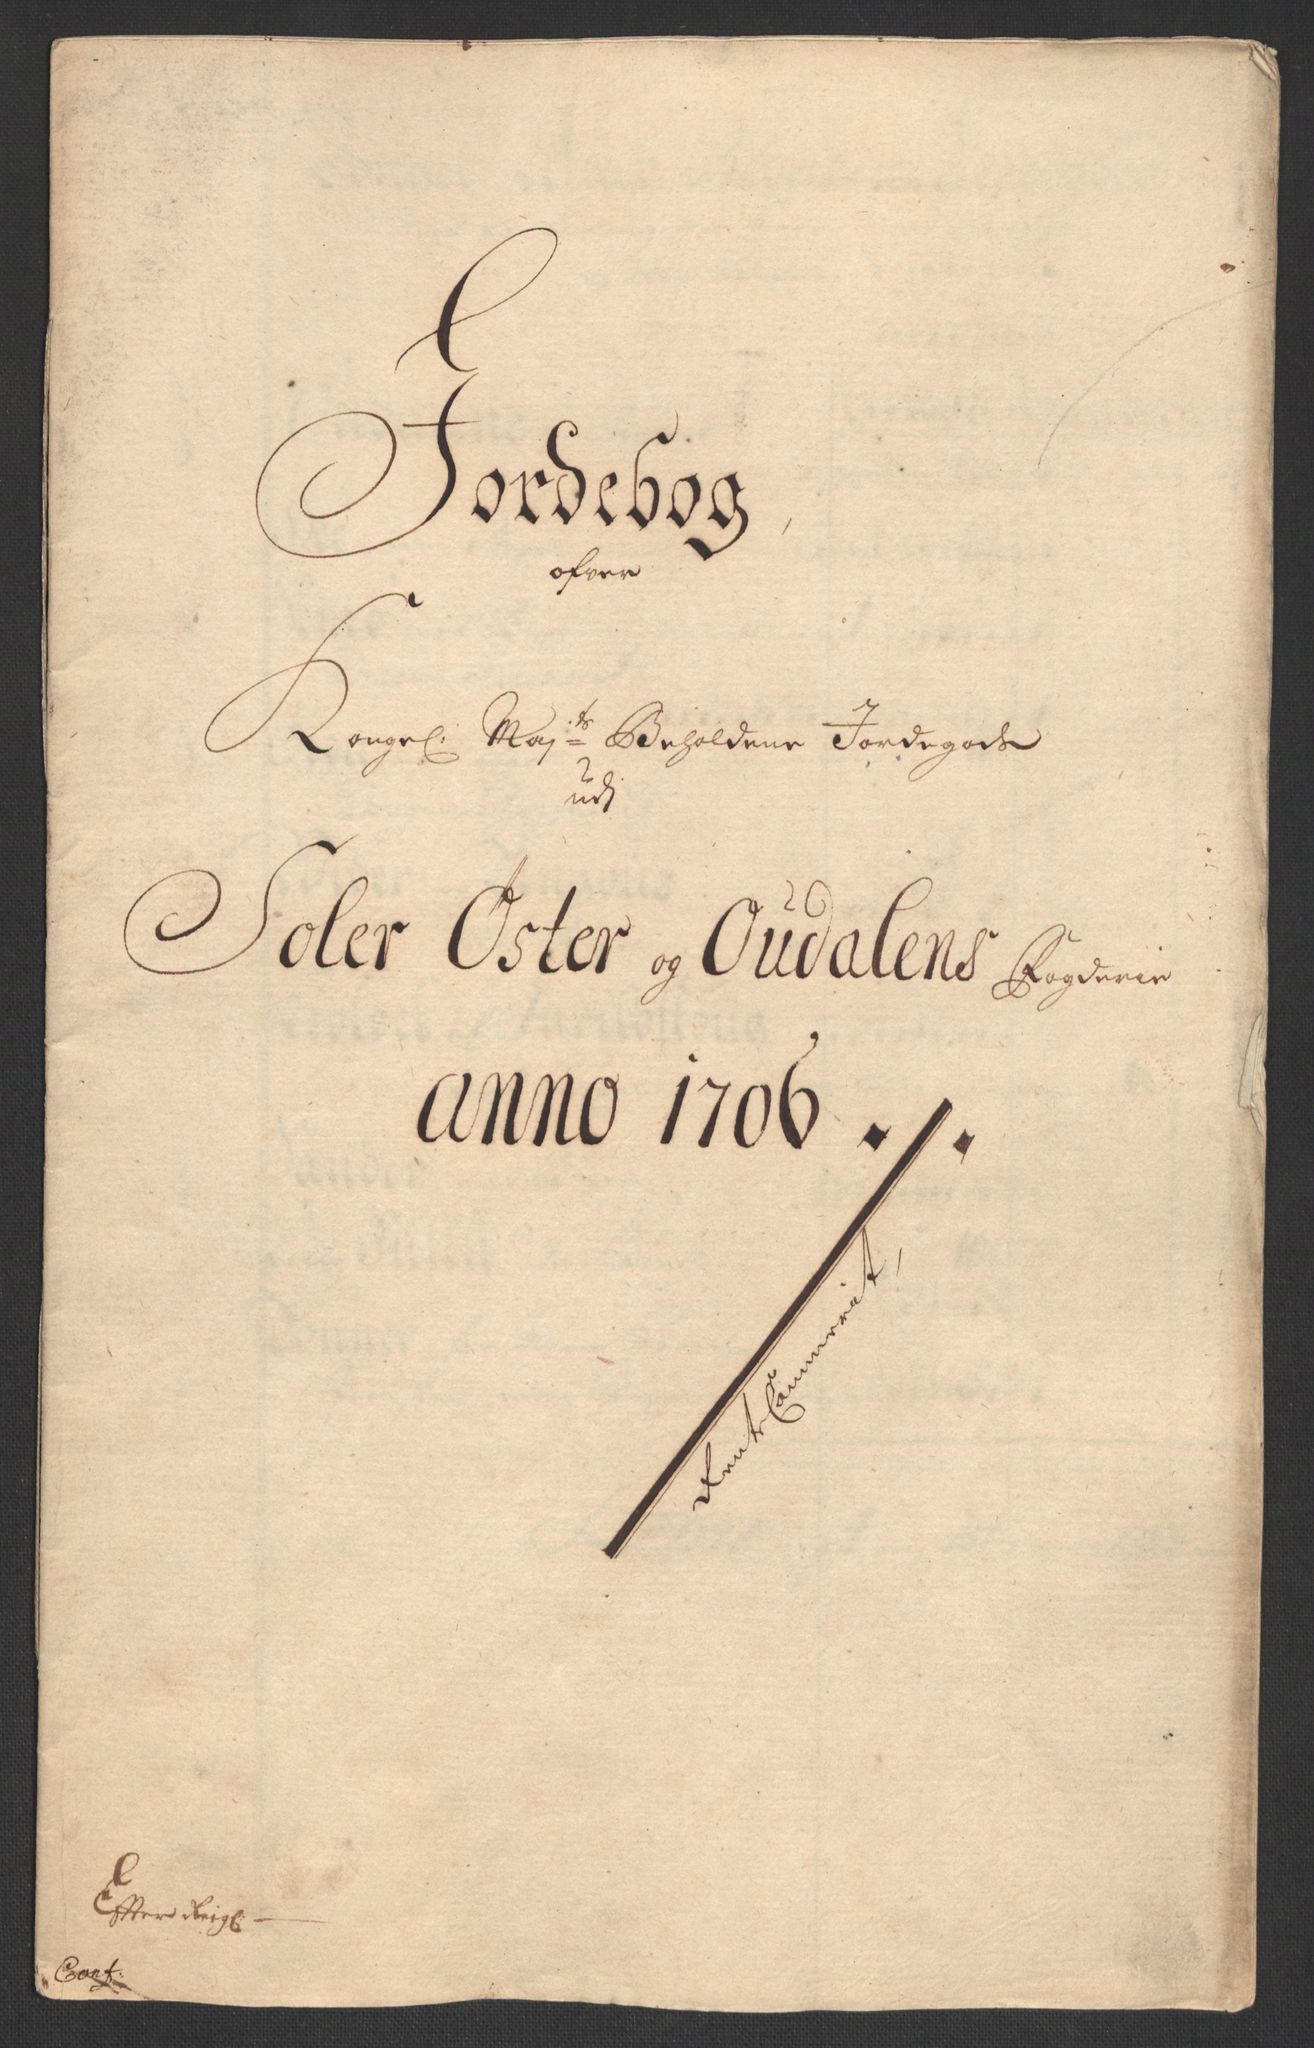 Jordebog,
ofver
Kongel: Maj:ts Beholdene Jordegods
udj
Soler Øster og Oudalens Fogderie
anno 1706
Rente Cammeret,
Efter Reigl:
Conf: